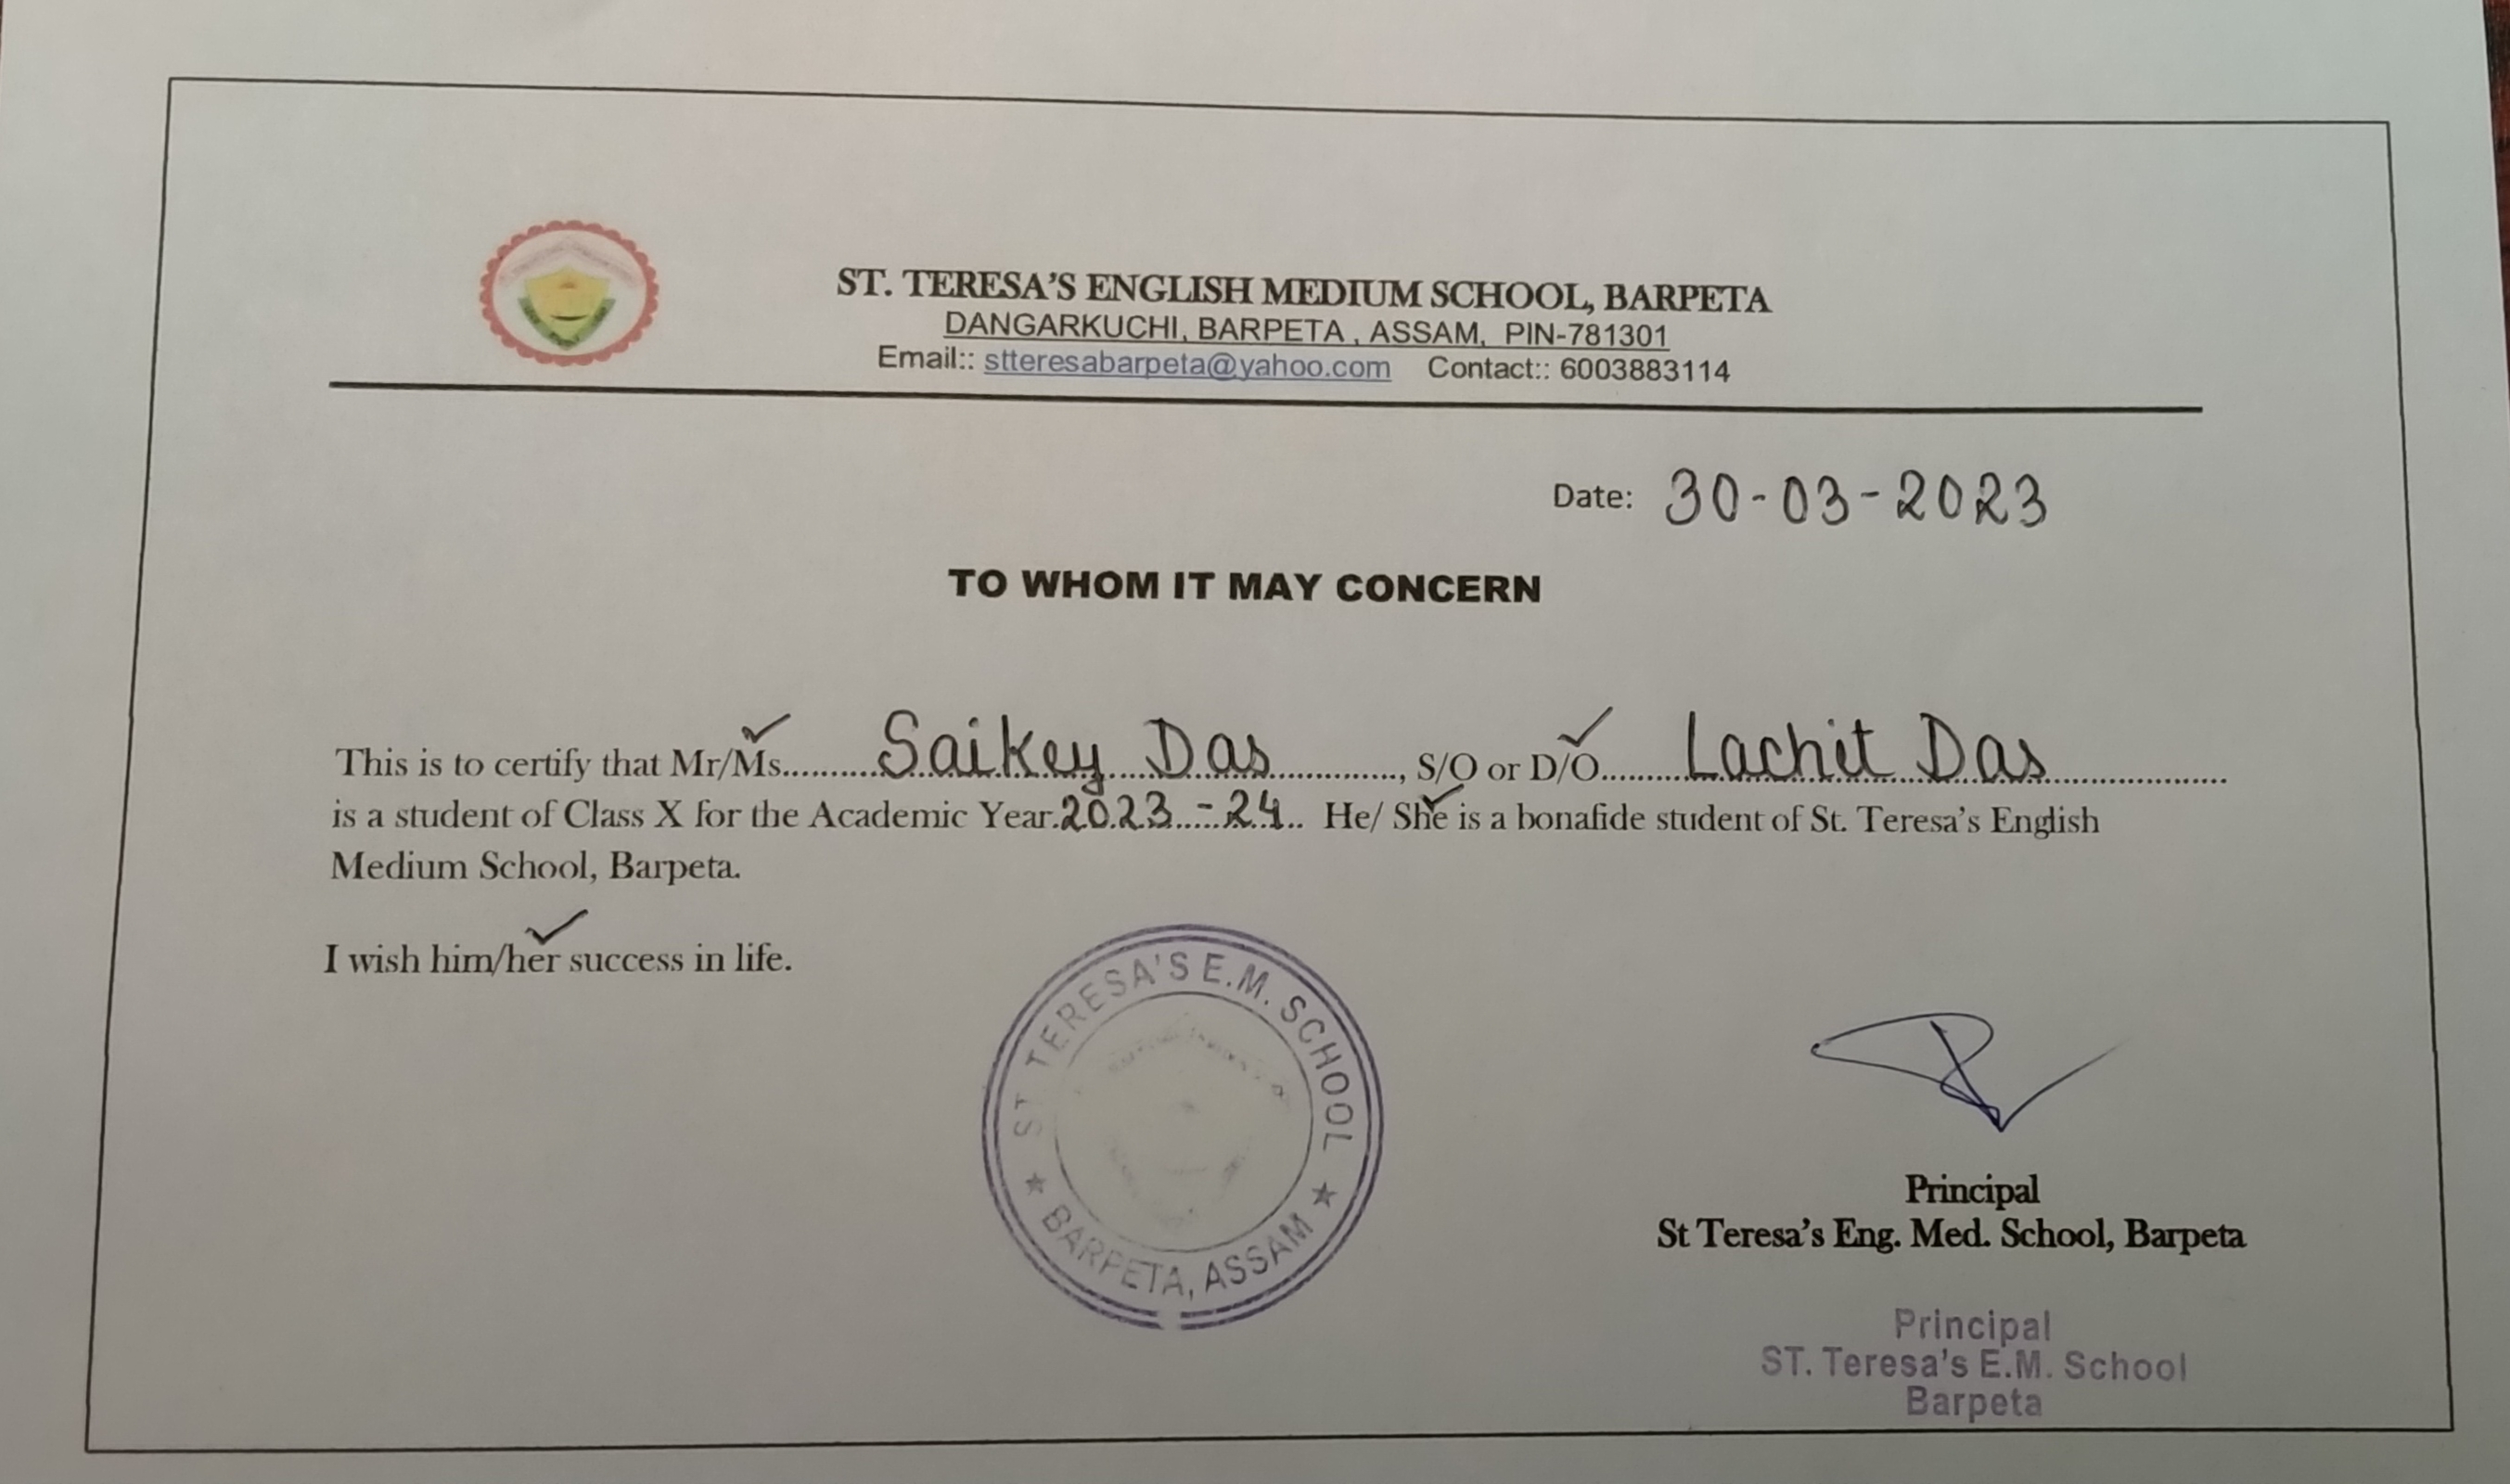 ST. TERESA'S ENGLISH MEDIUM SCHOOL, BARPETA
DANGARKUCHI, BARPETA , ASSAM, PIN-781301
Email:: stteresabarpeta@yahoo.com Contact:: 6003883114
Date: 30-03-2023
TO WHOM IT MAY CONCERN
This is to certify that Mr/Ms..........Saikey Das.............., S/O or D/O..........Lachit Das....................
is a student of Class X for the Academic Year.2023-24.. He/ She is a bonafide student of St. Teresa's English
Medium School, Barpeta.
I wish him/her success in life.
ST TERESA'S E.M. SCHOOL
★ BARPETA, ASSAM ★
Principal
St Teresa's Eng. Med. School, Barpeta
Principal
ST. Teresa's E.M. School
Barpeta